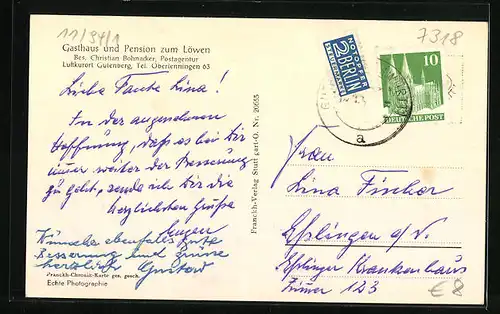 11/94/1
7318
Gasthaus und Pension zum Löwen
Bes. Christian Bohnacker, Postagentur
Luftkurort Gutenberg, Tel. Oberlenningen 63
NOTOPFER
2 BERLIN
STEUERMARKE
10
DEUTSCHE POST
a
Liebe Tante Lina!
In der angenehmen
Hoffnung, daß es bei Dir
immer weiter der Besserung
zu geht, sende ich Dir die
herzlichsten Grüße
Eugen
Wünsche ebenfalls gute
Besserung und grüsse
herzlichst Gustav
Franckh-Chronik-Karte ges. gesch.
Echte Photographie
Franckh-Verlag Stuttgart-O. Nr. 20655
Frau
Lina Fischer
Eßlingen a/N.
Eßlinger Krankenhaus
Zimmer 123
€8